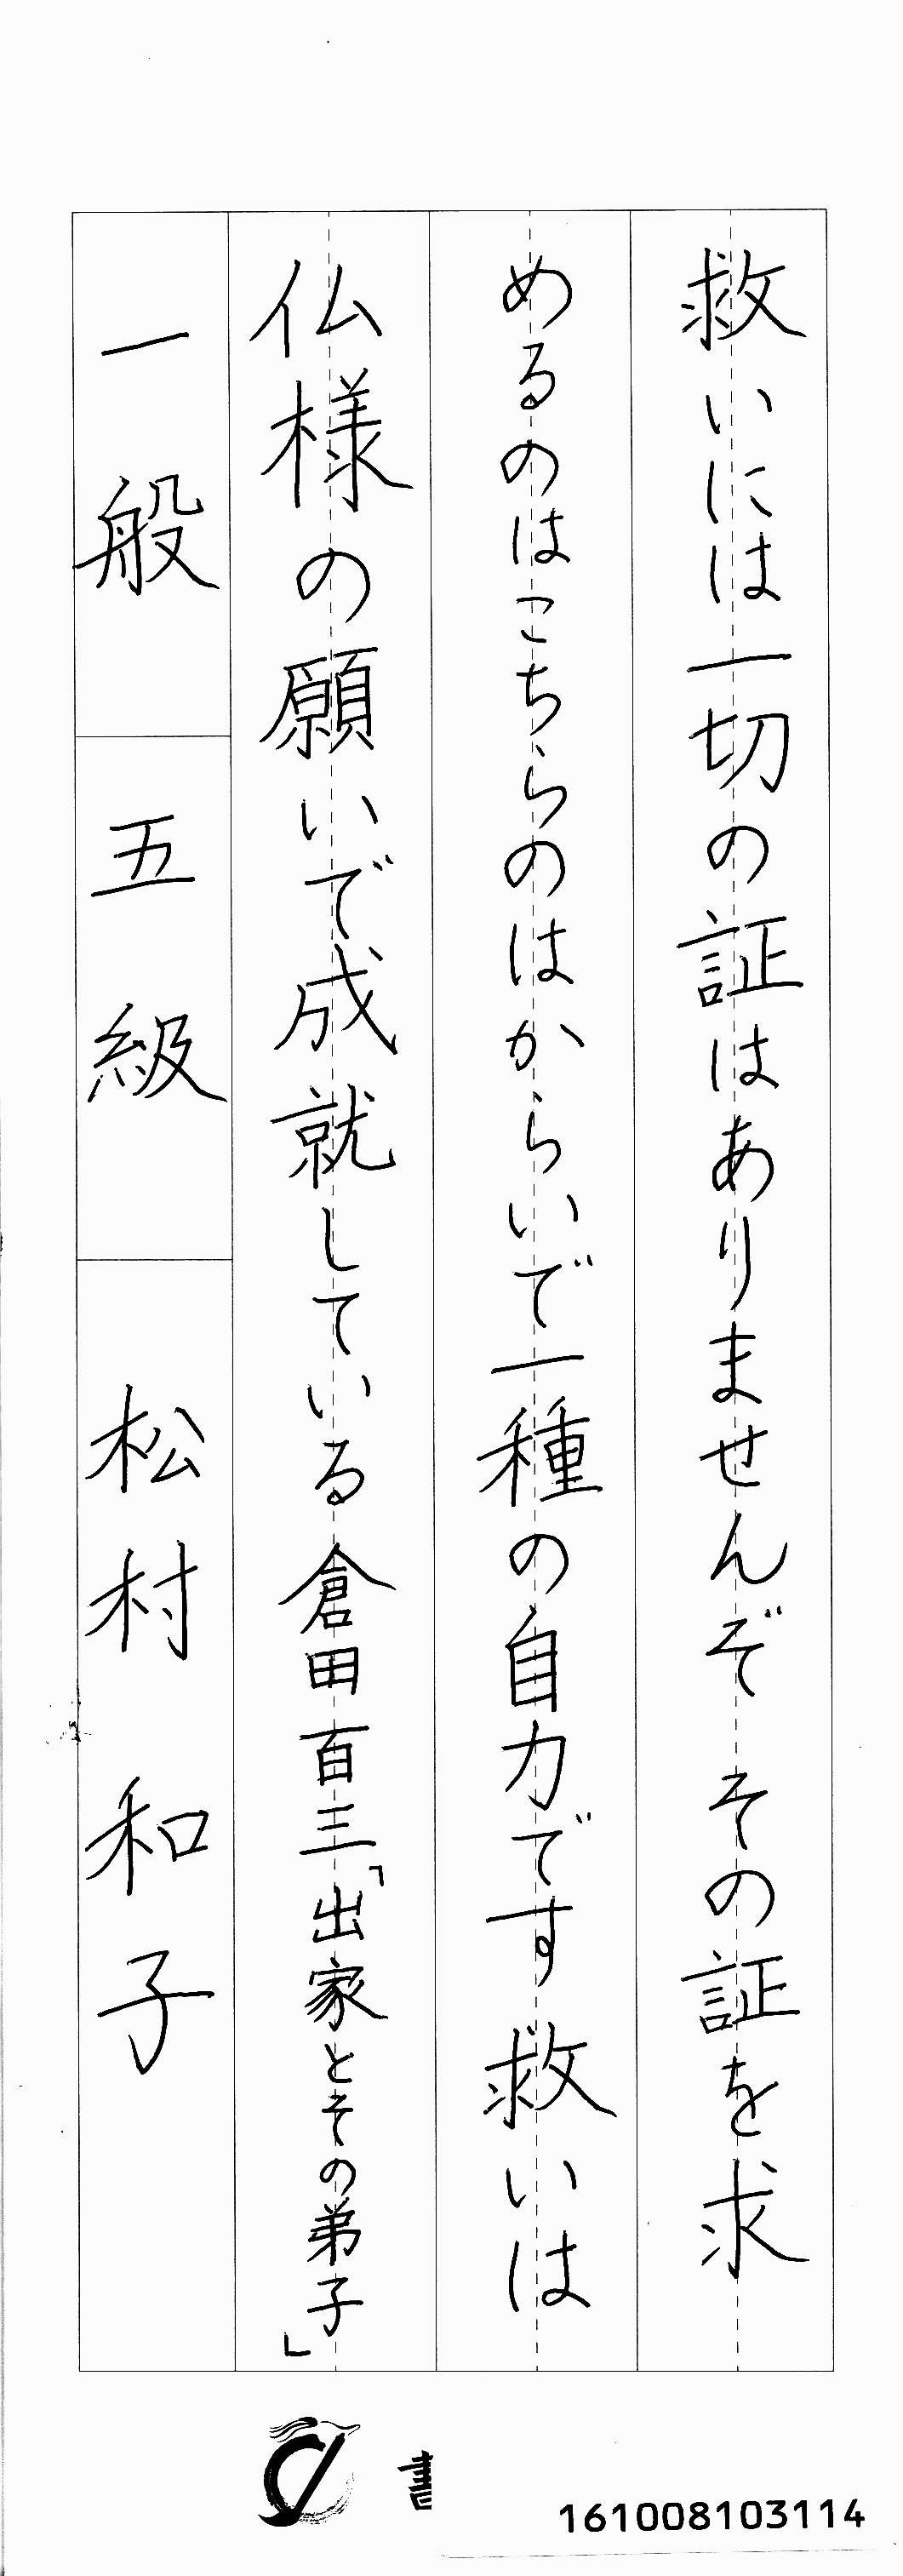 救いには一切の証はありませんぞ その証を求
めるのはこちらのはからいで一種の自力です救いは
仏様の願いで成就している倉田百三「出家とその弟子」
一般 五級 松村 和子
書
161008103114